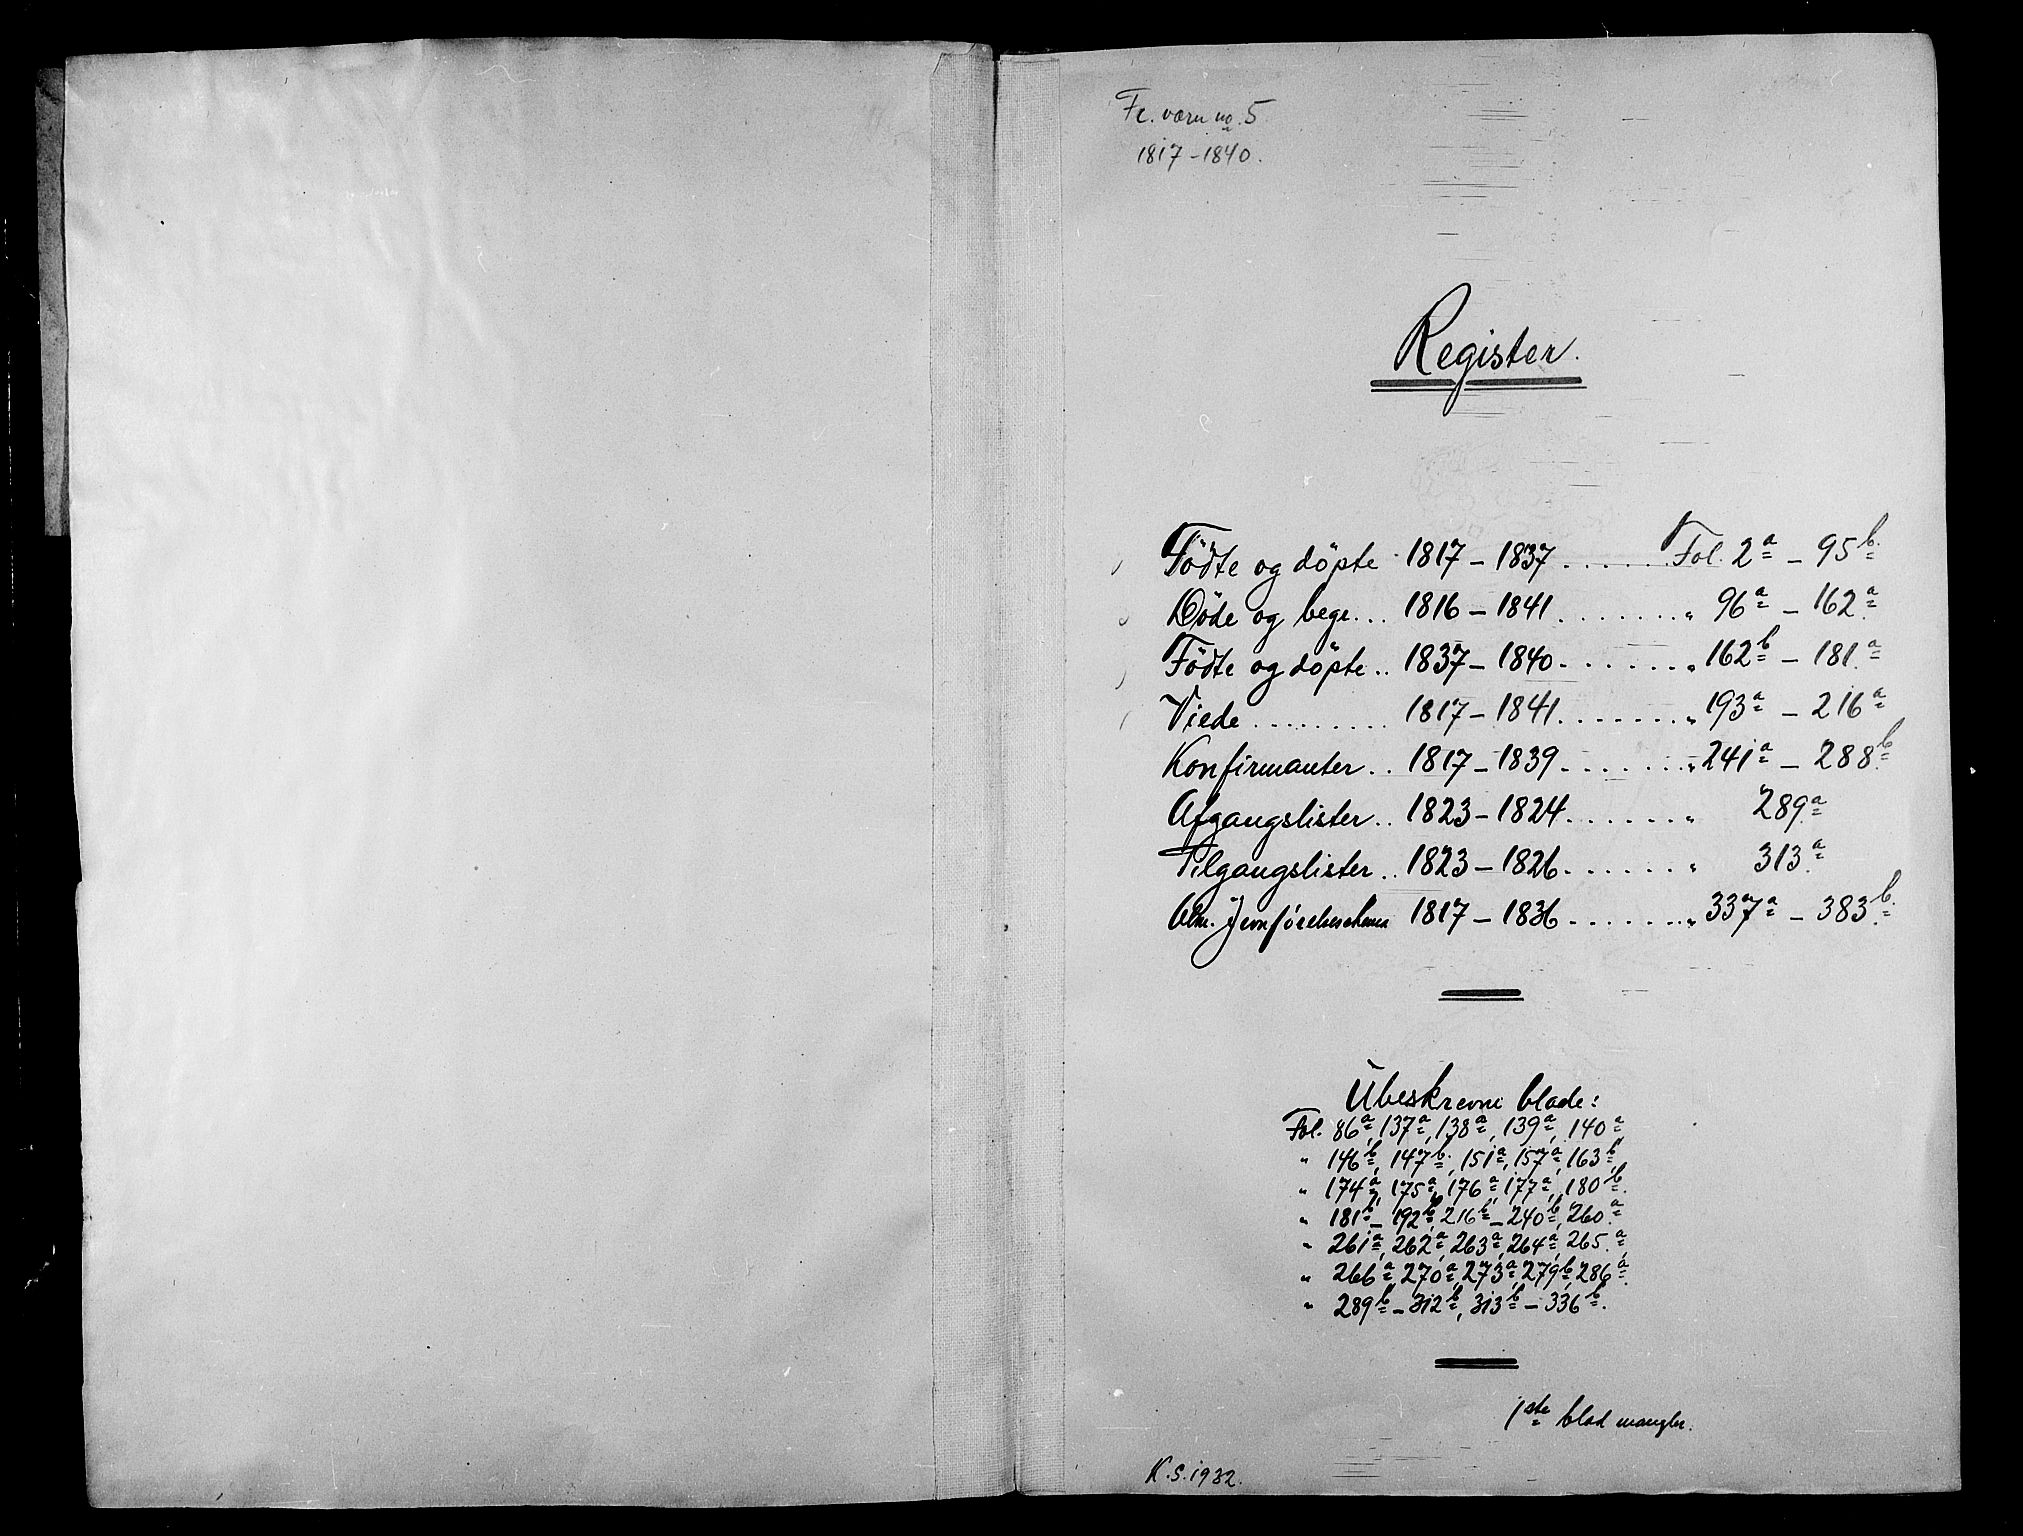 Fr. værn no. 5
1817-1840.
Register.
Födte og döpte 1817 - 1837 ...... Fol. 2a - 95b.
Döde og begr... 1816 - 1841 ....... " 96a - 162a.
Födte og döpte .. 1837 - 1840 ...... " 162b - 181a.
Viede ......... 1817 - 1841 ....... " 193a - 216a
Konfirmanter .. 1817 - 1839 ....... " 241a - 288b.
Afgangslister .. 1823 - 1824 ...... " 289a
Tilgangslister .. 1823 - 1826 ...... " 313a.
Alm. Jevnförelseschema 1817 - 1836 ....... " 337a - 383b.
Ubeskrevne blade:
Fol. 86a, 137a, 138a, 139a, 140a
" 146b, 147b, 151a, 157a, 163b,
" 174a, 175a, 176a, 177a, 180b.
" 181b - 192b, 216b - 240b, 260a.
" 261a, 262a, 263a, 264a, 265a.
" 266a, 270a, 273a, 279b, 286a.
" 289b - 312b, 313b - 336b.
1ste blad mangler.
K.S. 1932.